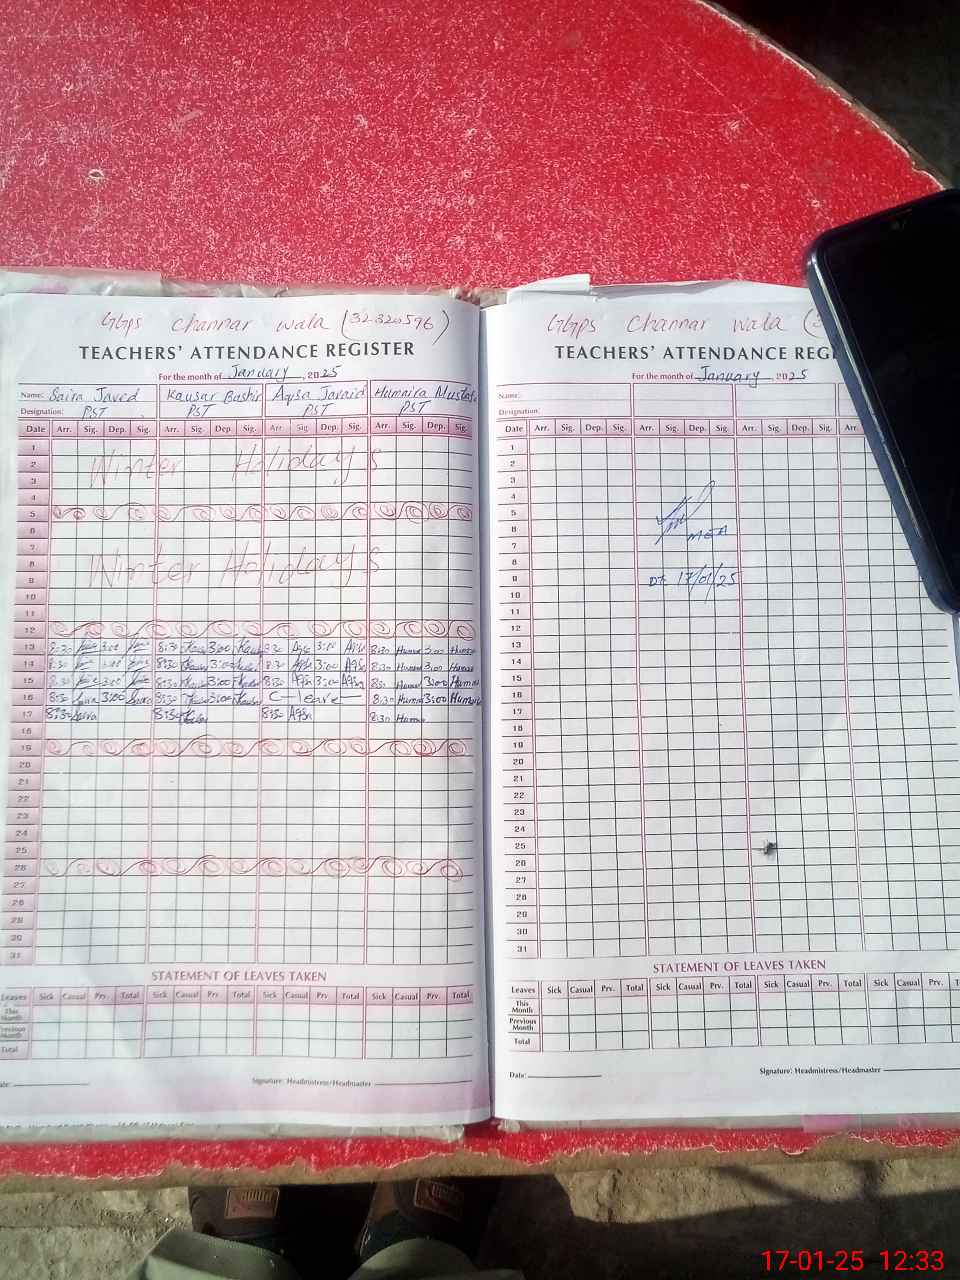 GGPS Channar wala (32320596)
TEACHERS' ATTENDANCE REGISTER
For the month of January, 2025
Name: Saira Javed Kausar Bashir Aqsa Javaid Humaira Mustafa
Designation: PST PST PST PST
Date Arr. Sig. Dep. Sig. Arr. Sig. Dep. Sig. Arr. Sig. Dep. Sig. Arr. Sig. Dep. Sig.
1
2 Winter Holidays
3
4
5
6
7
8 Winter Holidays
9
10
11
12
13 8:30 3:00 8:30 3:00 8:30 Aqsa 3:00 Aqsa 8:30 Humai 3:00 Humai
14 8:30 3:00 8:30 3:00 8:30 Aqsa 3:00 Aqsa 8:30 Humai 3:00 Humai
15 8:30 3:00 8:30 3:00 8:30 Aqsa 3:00 Aqsa 8:30 Humai 3:00 Humai
16 8:30 Saira 3:00 Saira 8:30 Kausar 3:00 Kausar C-leave 8:30 Humai 3:00 Humai
17 8:30 Saira 8:30 Kausar 8:30 Aqsa 8:30 Humai
18
19
20
21
22
23
24
25
26
27
28
29
30
31
STATEMENT OF LEAVES TAKEN
Leaves Sick Casual Prv. Total Sick Casual Prv. Total Sick Casual Prv. Total Sick Casual Prv. Total
This Month
Previous Month
Total
Date:
Signature: Headmistress/Headmaster
GGPS Channar wala (3
TEACHERS' ATTENDANCE REGI
For the month of January, 2025
Name:
Designation:
Date Arr. Sig. Dep. Sig. Arr. Sig. Dep. Sig. Arr. Sig. Dep. Sig. Arr.
1
2
3
4
5
6
MEA
7
8
9
DT 17/01/25
10
11
12
13
14
15
16
17
18
19
20
21
22
23
24
25
26
27
28
29
30
31
STATEMENT OF LEAVES TAKEN
Leaves Sick Casual Prv. Total Sick Casual Prv. Total Sick Casual Prv. Total Sick Casual Prv.
This Month
Previous Month
Total
Date:
Signature: Headmistress/Headmaster
17-01-25 12:33